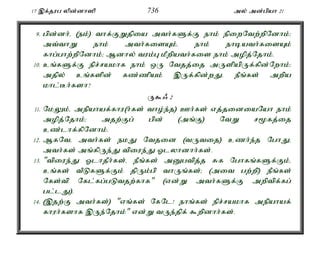 17 இக்தரப லின்னாஸி 736 அல் அன்பியா 21
9. பின்னர், (நம்) வாக்குறுதியை அவர்களுக்கு நாம் நிறைவேற்றினோம்;
அவ்வாறு நாம் அவர்களையும், நாம் நாடியவர்களையும்
காப்பாற்றினோம்; ஆனால் வரம்பு மீறியவர்களை நாம் அழித்தோம்.
10. உங்களுக்கு நிச்சயமாக நாம் ஒரு வேதத்தை அருளியிருக்கின்றோம்;
அதில் உங்களின் கண்ணியம் இருக்கின்றது. நீங்கள் அறிய
மாட்டீர்களா?
ருகூஃ 2
11. மேலும், அநியாயக்கார(ர்கள் வாழ்ந்த) ஊர்கள் எத்தனையையோ நாம்
அழித்தோம்; அதற்குப் பின் (அங்கு) வேறு சமூகத்தை
உண்டாக்கினோம்.
12. ஆகவே, அவர்கள் நமது வேதனை (வருவதை) உணர்ந்த போது,
அவர்கள் அங்கிருந்து விரைந்து ஓடலானார்கள்.
13. "விரைந்து ஓடாதீர்கள், நீங்கள் அனுபவித்த சுக போகங்களுக்கும்,
உங்கள் வீடுகளுக்கும் திரும்பி வாருங்கள்; (அவை பற்றி) நீங்கள்
கேள்வி கேட்கப்படுவதற்காக" (என்று அவர்களுக்கு அறிவிக்கப்
பட்டது).
14. (இதற்கு அவர்கள்) "எங்கள் கேடே! நாங்கள் நிச்சயமாக அநியாயக்
காரர்களாக இருந்தோம்" என்று வருந்திக் கூறினார்கள்.